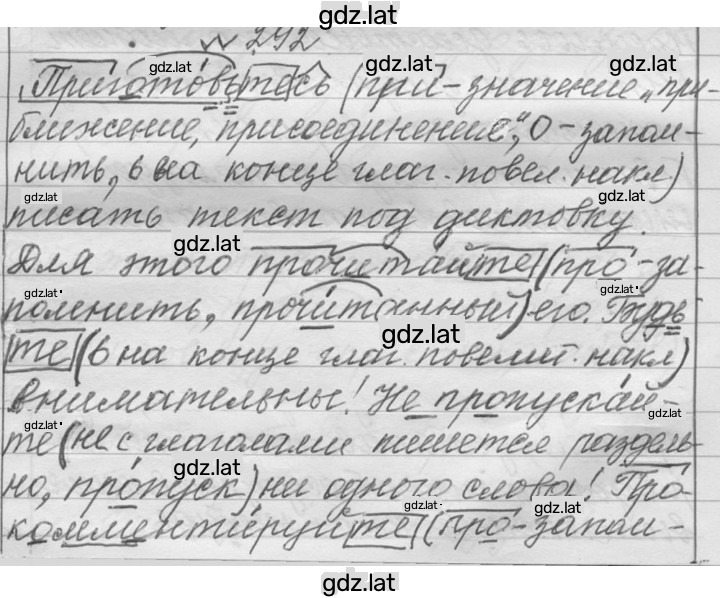 gdz.lat
№ 292
gdz.lat gdz.lat gdz.lat
Приготовьтесь (при-значение „при-
ближение, присоединение“, О-запом-
нить, ь на конце глаг. повел. накл)
gdz.lat gdz.lat
писать текст под диктовку.
gdz.lat
Для этого прочитайте (про-за-
gdz.lat gdz.lat
помнить, прочитанный) его. Будь-
gdz.lat
те (ь на конце глаг. повелит. накл)
внимательны! Не пропускай-
gdz.lat gdz.lat
те (не с глаголами пишется раздель-
gdz.lat
но, пропуск) ни одного слова! Про
gdz.lat gdz.lat
комментируйте (про-запом-
gdz.lat